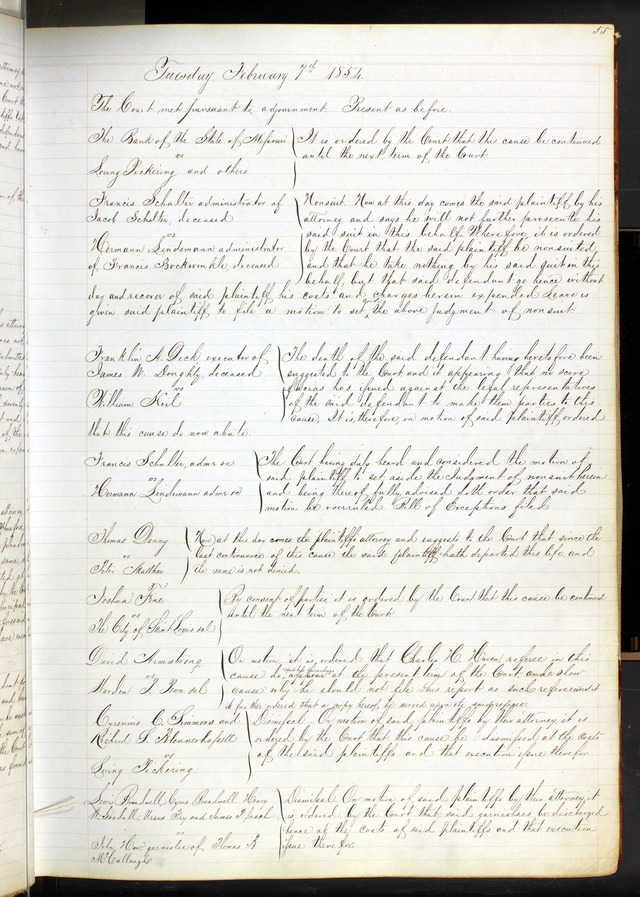 55
Tuesday February 7th 1854
The Court met pursuant to adjournment Present as before.
The Bank of the State of Missouri
vs
Loring Pickering and others
It is ordered by the Court that this cause be continued
until the next term of the Court
Francis Schulter administrator of
Jacob Schulter, deceased
vs
Hermann Lindemann administrator
of Francis Bockwinkle, deceased
Nonsuit Now at this day comes the said plaintiff by his
attorney and says he will not further prosecute his
said suit in this behalf Wherefore, it is ordered
by the Court that the said plaintiff be nonsuited
and that he take nothing by his said suit in this
behalf, but that said defendant go hence without
day and recover of said plaintiff his costs and charges herein expended Leave is
given said plaintiff to file a motion to set aside the above judgment of nonsuit
Franklin A. Dick executor of
James W. Doughty, deceased
vs
William Keil
The death of the said defendant having heretofore been
suggested to the Court and it appearing that no scire
facias has issued against the legal representatives
of the said defendant to make them parties to this
cause It is, therefore, on motion of said plaintiff ordered
that this cause do now abate.
Francis Schulter, admr &c
vs
Hermann Lindemann admr &c
The Court having duly heard and considered the motion of
said plaintiff to set aside the Judgment of nonsuit herein
and being thereof fully advised doth order that said
motion be overruled Bill of Exceptions filed
Thomas Denny
vs
Peter Matthu
Now at this day comes the plaintiffs attorney and suggests to the Court that since the
last continuance of this cause the said plaintiff hath departed this life and
the same is not denied.
Joshua Fine
vs
The City of Saint Louis et al
By consent of parties it is ordered by the Court that this cause be continued
until the next term of the Court
David Armstrong
vs
Harden T. et al
On motion, it is ordered that Charles H. Haven referee in this
cause do appear at the present term of the Court and show
cause why he should not file his report as such referee and it
is further ordered that a copy hereof be served upon the said referee
Cyrenius C. Simmons and
Richard S. Blennerhassett
vs
Loring Pickering
Dismissal On motion of said plaintiffs by their attorney, it is
ordered by the Court that this cause be dismissed at the costs
of the said plaintiffs and that execution issue therefor
Lewis Broadwell Cyrus Broadwell Henry
W. Goodall and James T.
vs
John How garnishee of Thomas K
McCullough
Dismissal On motion of said plaintiffs by their attorney, it
is ordered by the Court that said garnishee be discharged
hence at the costs of said plaintiffs and that execution
issue therefor.